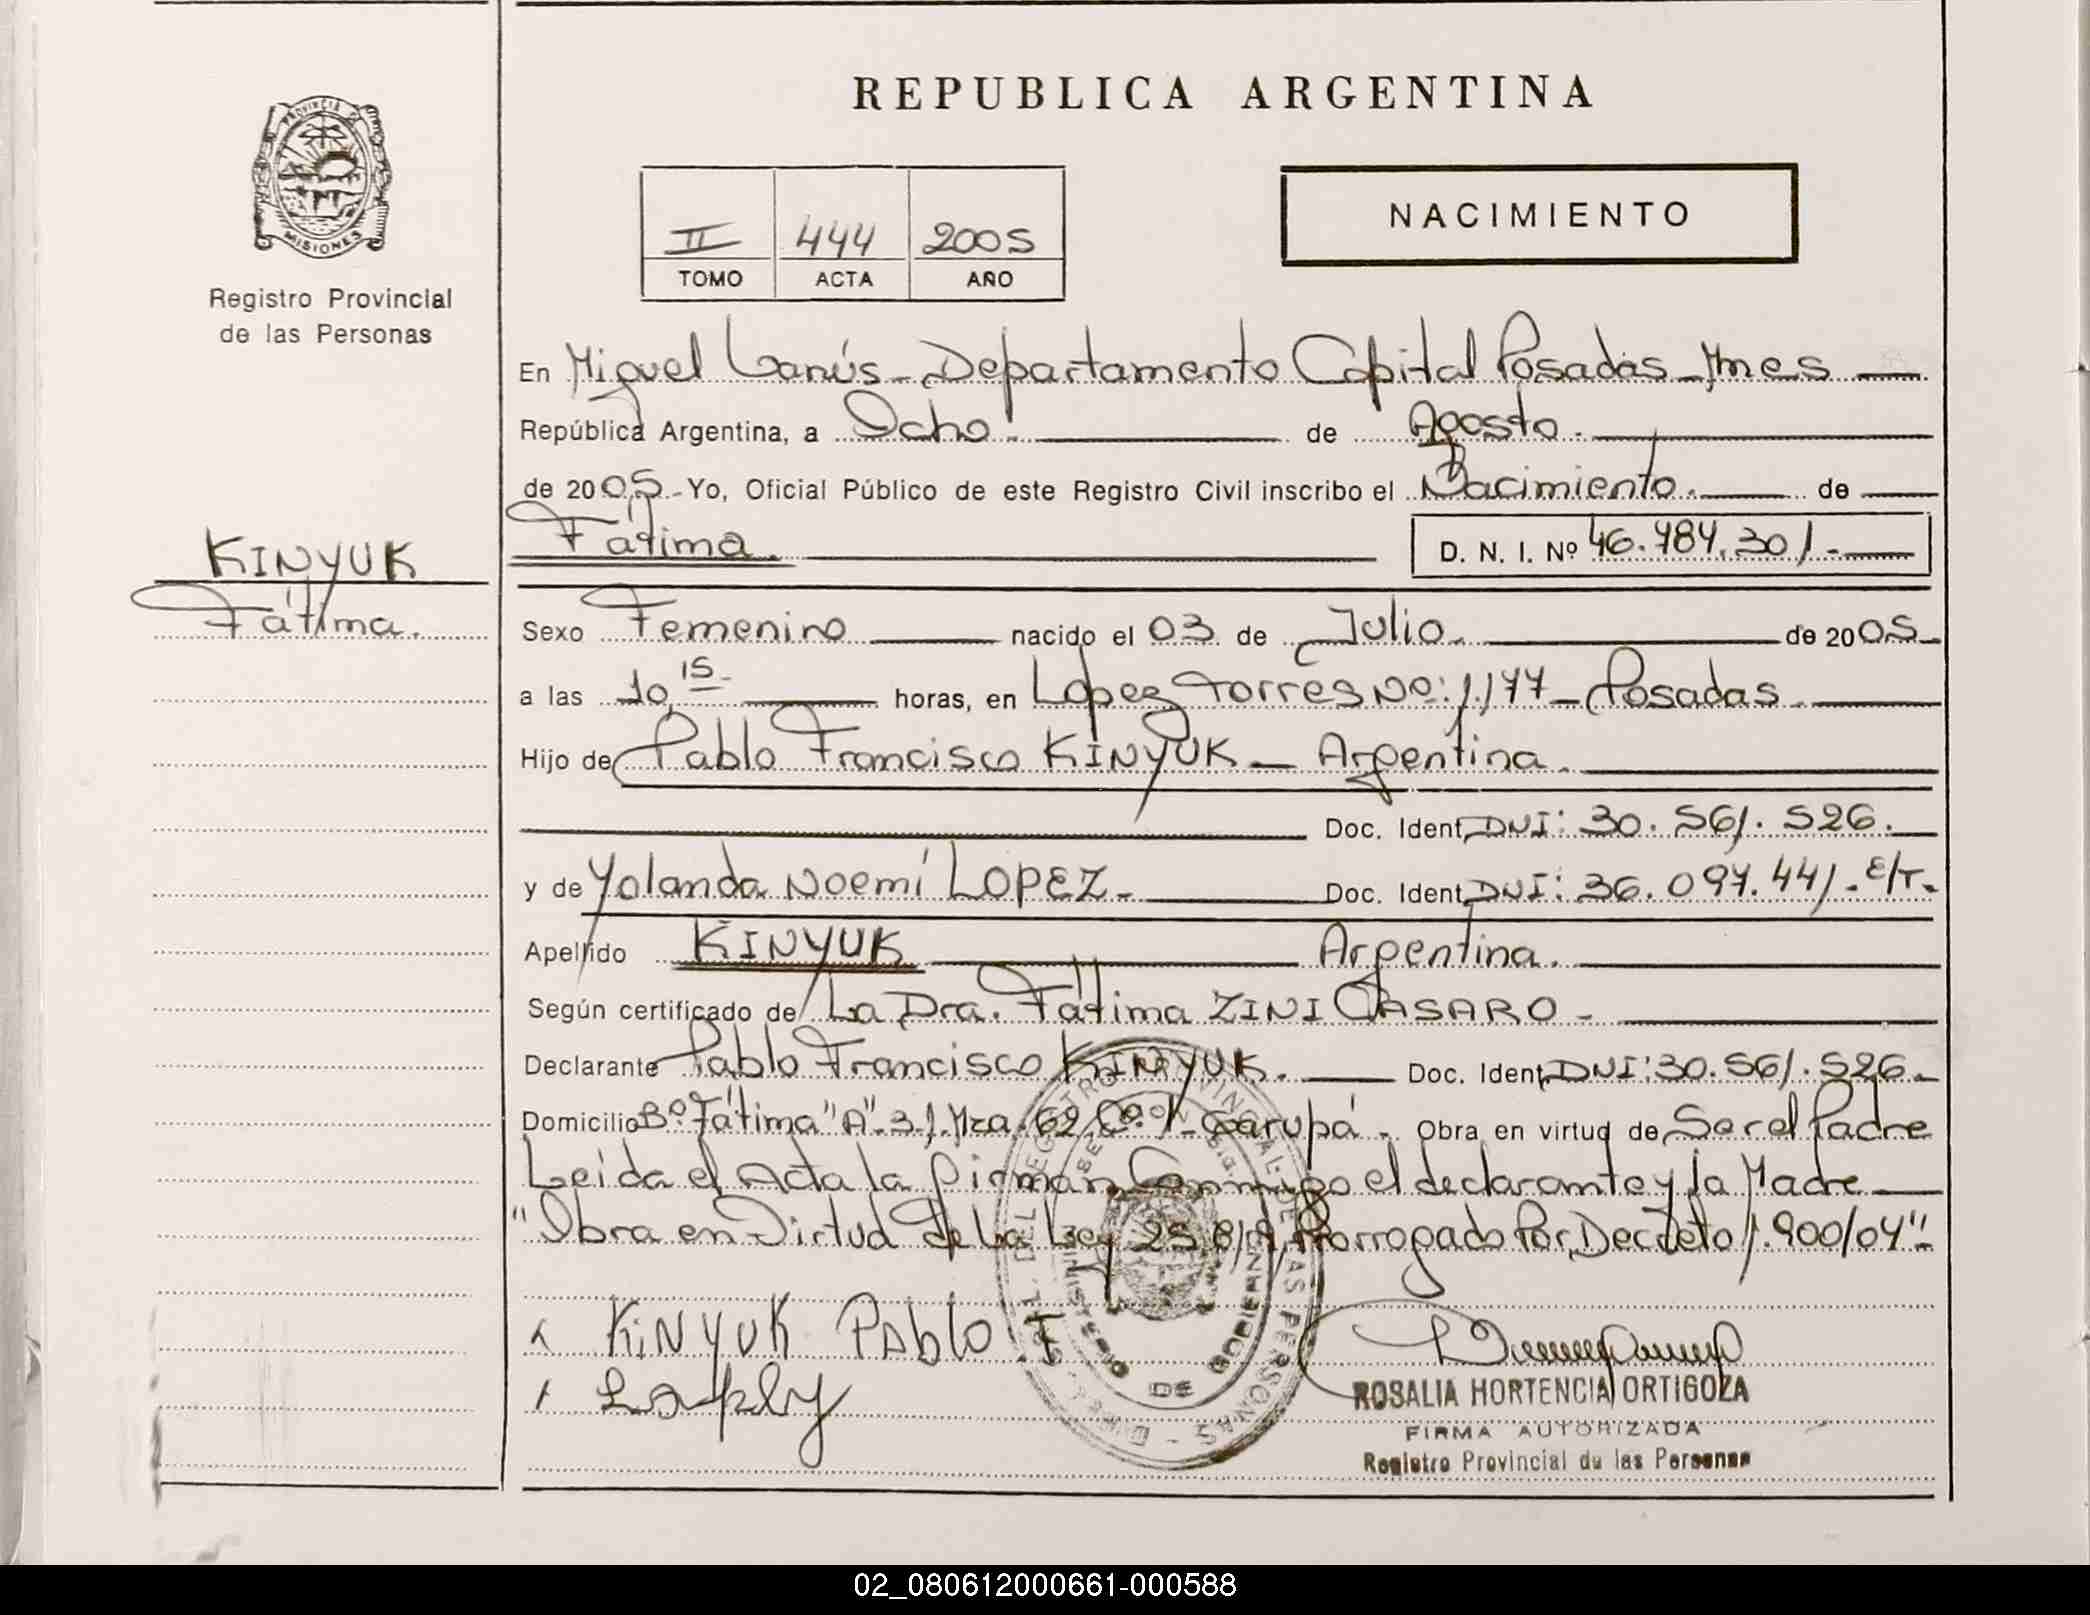 REPUBLICA ARGENTINA
PROVINCIA DE MISIONES
Registro Provincial
de las Personas
II 444 2005
TOMO ACTA AÑO
NACIMIENTO
En Miguel Lanús - Departamento Capital Posadas - Mnes
República Argentina, a Ocho - de Agosto -
de 2005 - Yo, Oficial Público de este Registro Civil inscribo el Nacimiento - de
Fátima. D. N. I. Nº
KINYUK
Fátima.
Sexo Femenino nacido el 03 de Julio de 2005
a las 10,15 horas, en López Torres No: 1.177 - Posadas.
Hijo de Pablo Francisco KINYUK - Argentina.
Doc. Ident. DNI: 30.561.526.
y de Yolanda Noemí LOPEZ - Doc. Ident. DNI: 36.097.441. E/T.
Apellido KINYUK Argentina.
Según certificado de La Dra. Fátima ZINI CASARO -
Declarante Pablo Francisco KINYUK. Doc. Ident. DNI: 30.561.526.
Domicilio Bº Fátima "A" Mza. 62 Garupá - Obra en virtud de Ser el Padre
Leida el Acta la firman Conmigo el declarante y la Madre
"Obra en Virtud De La Ley 25.819, Prorrogado Por Decreto 1.900/04"
KINYUK PAblo F
ROSALIA HORTENCIA ORTIGOZA
FIRMA AUTORIZADA
Registro Provincial de las Personas
MINISTERIO DE GOBIERNO
02_080612000661-000588